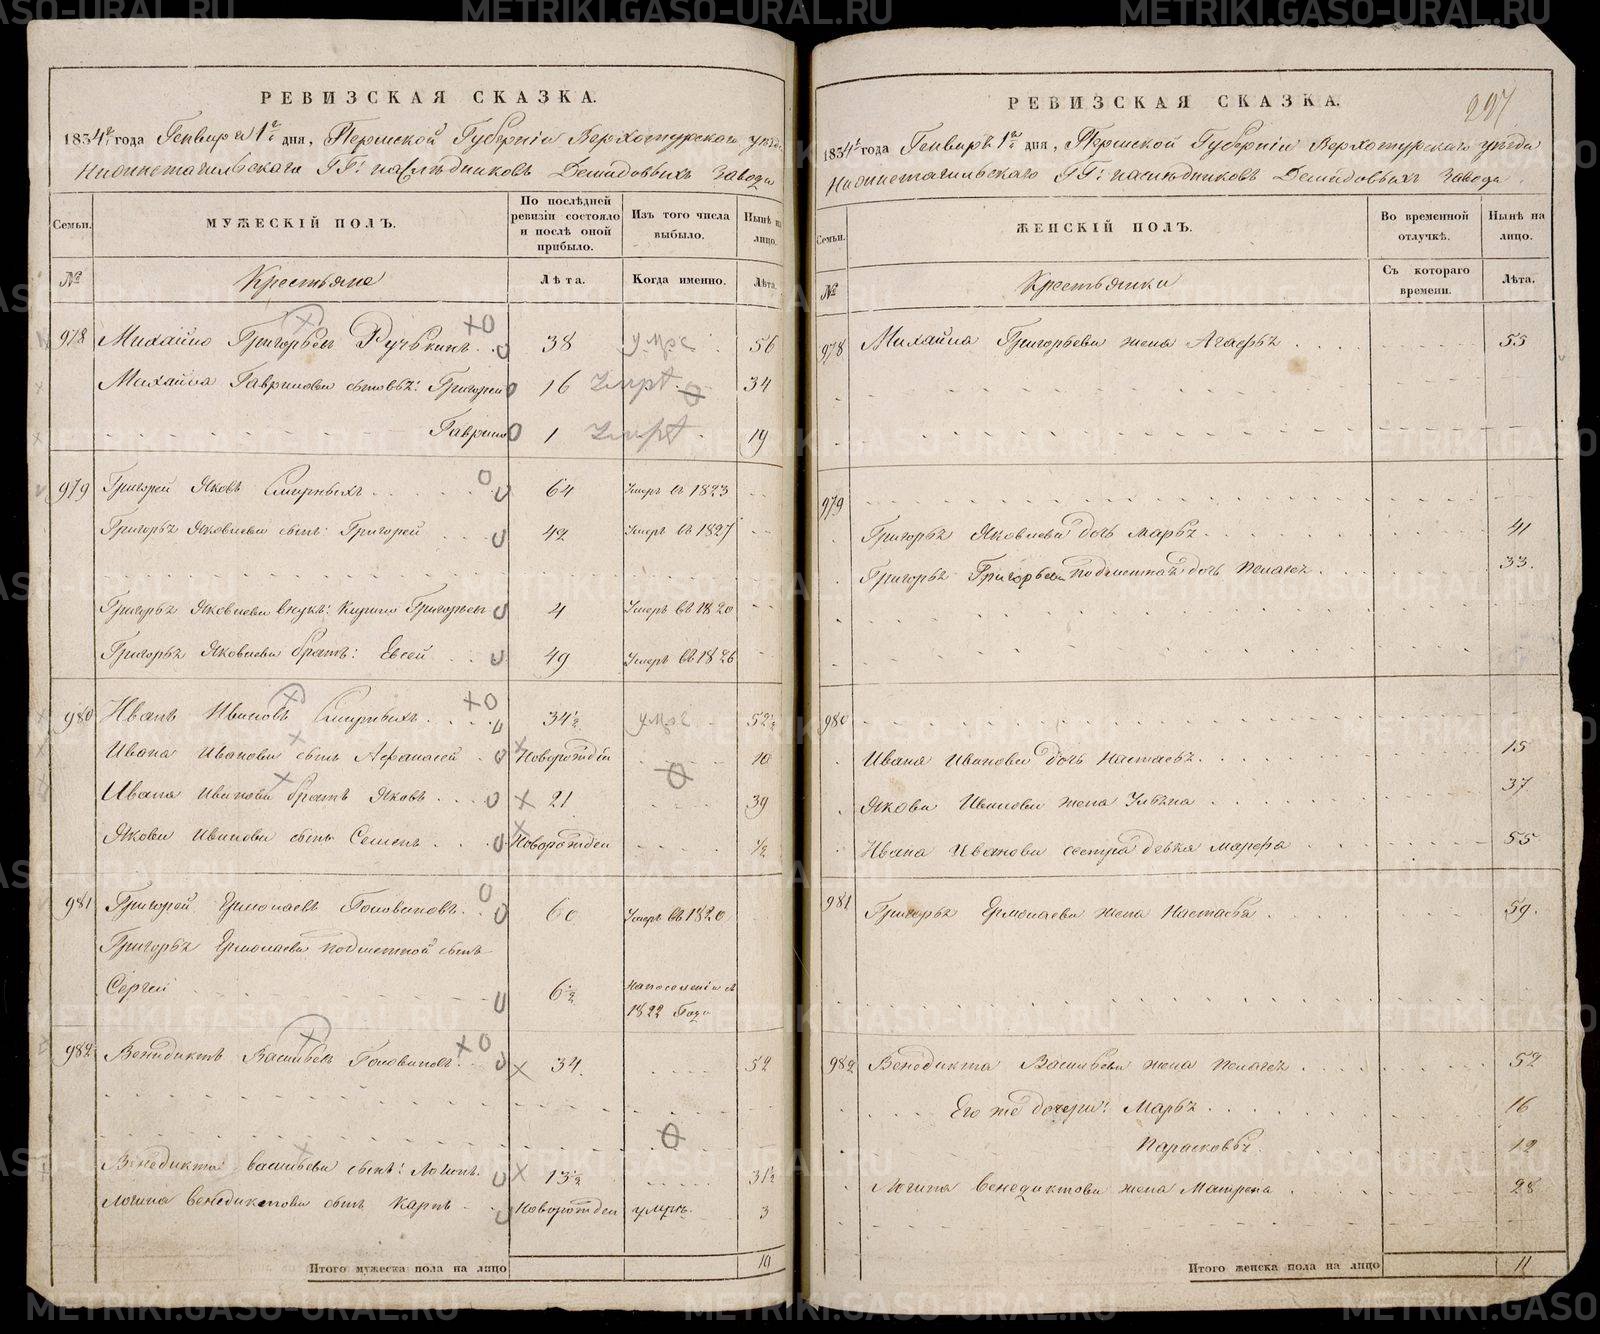 РЕВИЗСКАЯ СКАЗКА.
1834 года Генваря 1 дня, Пермской Губерніи Верхотурского уезда
Нижнетагильского ГГ: наследниковъ Демидовыхъ Завода
Семьи. МУЖЕСКІЙ ПОЛЪ. По послѣдней ревизіи состояло и послѣ оной прибыло. Изъ того числа выбыло. Нынѣ на лицо.
№ Крестьяне Лѣта. Когда именно. Лѣта.
978 Михайло Григорьевъ 38 умре 56
Михайла сыновья: Григорей 16 34
Гаврило 1 19
979 Григорей Яковъ Смирныхъ 64 Умеръ въ 1823
Григорья Яковлева сынъ: Григорей 42 Умеръ въ 1827
Григорья Яковлева внукъ: Кирило Григорьевъ 4 Умеръ въ 1820
Григорья Яковлева братъ: Евсей 49 Умеръ въ 1826
980 Иванъ Ивановъ Смирныхъ 34½ умре 52½
Ивана Иванова сынъ Афанасей Новорожден 10
Ивана Иванова братъ Яковъ 21 39
Якова Иванова сынъ Семенъ Новорожден ½
981 Григорей Ермолаевъ Головановъ 60 Умеръ въ 1820
Григорья Ермолаева сынъ
Сергей 6½
1822 Года
982 Венедиктъ Васильевъ Головановъ 34. 52
Венедикта Васильева сынъ: Логинъ 13½ 31½
Логина Венедиктова сынъ Карпъ Новорожден 3
Итого мужеска пола на лицо 10
РЕВИЗСКАЯ СКАЗКА.
297
1834 года Генваря 1 дня, Пермской Губерніи Верхотурского уезда
Нижнетагильского ГГ: наследниковъ Демидовыхъ Завода
Семьи. ЖЕНСКІЙ ПОЛЪ. Во временной отлучкѣ. Нынѣ на лицо.
№ Крестьянки Съ котораго времени. Лѣта.
978 Михайла Григорьева жена Агафья 55
979
Григорья Яковлева дочь Марья 41
Григорья Григорьева дочь Пелагея 33
980
Ивана Иванова дочь Настасья 15
Якова Иванова жена Ульяна 37
Ивана Иванова сестра девка Марфа 55
981 Григорья Ермолаева жена Настасья 59.
982 Венедикта Васильева жена Пелагея 52
Его же дочери: Марья 16
Парасковья 12
Логина Венедиктова жена Матрена 28
Итого женска пола на лицо 11
METRIKI.GASO-URAL.RU